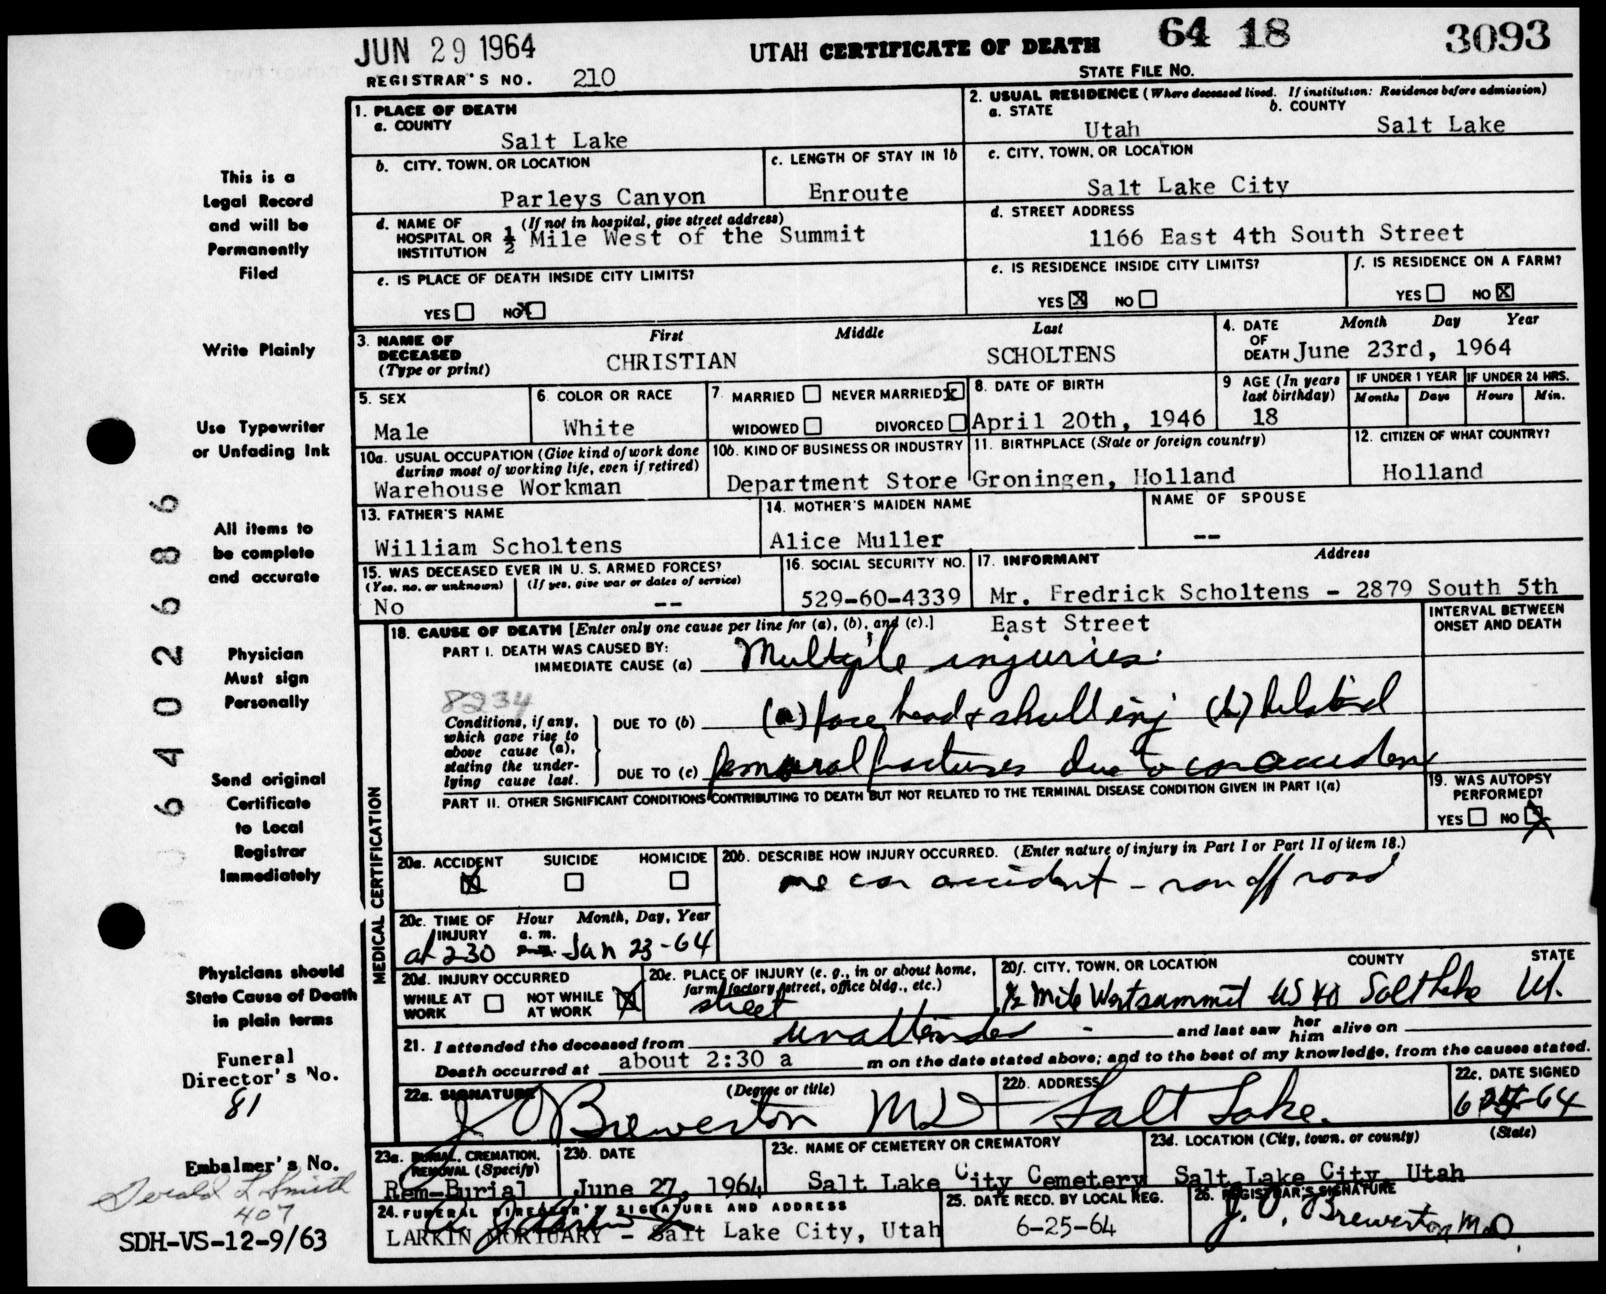 JUN 29 1964
UTAH CERTIFICATE OF DEATH
64 18 3093
REGISTRAR'S NO. 210
STATE FILE No.
1. PLACE OF DEATH
a. COUNTY
Salt Lake
2. USUAL RESIDENCE (Where deceased lived. If institution: Residence before admission)
a. STATE
Utah
b. COUNTY
Salt Lake
b. CITY, TOWN, OR LOCATION
Parleys Canyon
c. LENGTH OF STAY IN 1b
Enroute
c. CITY, TOWN, OR LOCATION
Salt Lake City
d. NAME OF HOSPITAL OR INSTITUTION (If not in hospital, give street address)
½ Mile West of the Summit
d. STREET ADDRESS
1166 East 4th South Street
e. IS PLACE OF DEATH INSIDE CITY LIMITS?
YES NO X
e. IS RESIDENCE INSIDE CITY LIMITS?
YES X NO
f. IS RESIDENCE ON A FARM?
YES NO X
3. NAME OF DECEASED (Type or print)
First Middle Last
CHRISTIAN SCHOLTENS
4. DATE OF DEATH Month Day Year
June 23rd, 1964
5. SEX
Male
6. COLOR OR RACE
White
7. MARRIED NEVER MARRIED X
WIDOWED DIVORCED
8. DATE OF BIRTH
April 20th, 1946
9 AGE (In years last birthday)
18
IF UNDER 1 YEAR
Months Days
IF UNDER 24 HRS.
Hours Min.
10a. USUAL OCCUPATION (Give kind of work done during most of working life, even if retired)
Warehouse Workman
10b. KIND OF BUSINESS OR INDUSTRY
Department Store
11. BIRTHPLACE (State or foreign country)
Groningen, Holland
12. CITIZEN OF WHAT COUNTRY?
Holland
13. FATHER'S NAME
William Scholtens
14. MOTHER'S MAIDEN NAME
Alice Muller
NAME OF SPOUSE
--
15. WAS DECEASED EVER IN U. S. ARMED FORCES?
(Yes, no, or unknown) (If yes, give war or dates of service)
No --
16. SOCIAL SECURITY NO.
529-60-4339
17. INFORMANT Address
Mr. Fredrick Scholtens - 2879 South 5th
East Street
18. CAUSE OF DEATH [Enter only one cause per line for (a), (b), and (c).]
INTERVAL BETWEEN ONSET AND DEATH
PART I. DEATH WAS CAUSED BY:
IMMEDIATE CAUSE (a) Multiple injuries:
8234
Conditions, if any, which gave rise to above cause (a), stating the underlying cause last.
DUE TO (b) (a) face head & skull inj (b) bilateral
DUE TO (c) femoral fractures due to car accident
PART II. OTHER SIGNIFICANT CONDITIONS CONTRIBUTING TO DEATH BUT NOT RELATED TO THE TERMINAL DISEASE CONDITION GIVEN IN PART I(a)
19. WAS AUTOPSY PERFORMED?
YES NO X
MEDICAL CERTIFICATION
20a. ACCIDENT SUICIDE HOMICIDE
X
20b. DESCRIBE HOW INJURY OCCURRED. (Enter nature of injury in Part I or Part II of item 18.)
one car accident - ran off road
20c. TIME OF INJURY Hour Month, Day, Year
a. m.
p. m.
at 230 Jun 23-64
20d. INJURY OCCURRED
WHILE AT WORK NOT WHILE AT WORK X
20e. PLACE OF INJURY (e. g., in or about home, farm, factory, street, office bldg., etc.)
street
20f. CITY, TOWN, OR LOCATION COUNTY STATE
½ Mile West summit US 40 Salt Lake Ut.
21. I attended the deceased from unattended - and last saw her him alive on
Death occurred at about 2:30 a m on the date stated above; and to the best of my knowledge, from the causes stated.
22a. SIGNATURE (Degree or title)
J O Brewerton MD
22b. ADDRESS
Salt Lake.
22c. DATE SIGNED
6 25-64
23a. BURIAL, CREMATION, REMOVAL (Specify)
Rem-Burial
23b. DATE
June 27, 1964
23c. NAME OF CEMETERY OR CREMATORY
Salt Lake City Cemetery
23d. LOCATION (City, town, or county) (State)
Salt Lake City, Utah
24. FUNERAL DIRECTOR'S SIGNATURE AND ADDRESS
LARKIN MORTUARY - Salt Lake City, Utah
25. DATE RECD. BY LOCAL REG.
6-25-64
26. REGISTRAR'S SIGNATURE
J. O. Brewerton M.D.
This is a
Legal Record
and will be
Permanently
Filed
Write Plainly
Use Typewriter
or Unfading Ink
All items to
be complete
and accurate
Physician
Must sign
Personally
Send original
Certificate
to Local
Registrar
Immediately
Physicians should
State Cause of Death
in plain terms
Funeral
Director's No.
81
Embalmer's No.
Gerald L Smith
407
SDH-VS-12-9/63
64026886